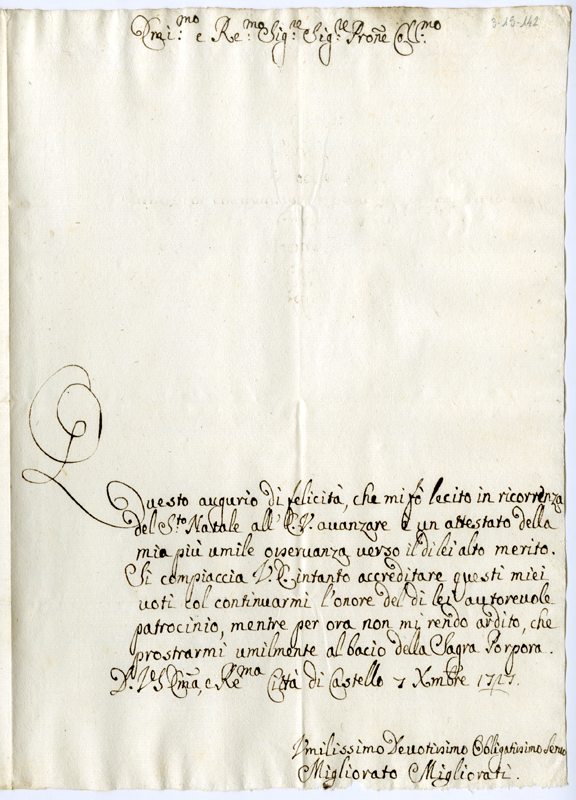 3-15-142
Emi:mo e Re:mo Sig:re Sig:re Prone Coll:mo
Questo augurio di felicità, che mi fò lecito in ricorrenza
del S:to Natale all' E.V. auanzare è un attestato della
mia più umile osseruanza verso il di lei alto merito.
Si compiaccia V.E. intanto accreditare questi miei
voti col continuarmi l'onore del di lei autoreuole
patrocinio, mentre per ora non mi rendo ardito, che
prostrarmi umilmente al bacio della Sagra Porpora.
D. V. Ema, e Rema Città di Castello 7 Xmbre 1727.
Vmilissimo Deuotissimo Obligatissimo Seruo
Migliorato Migliorati.